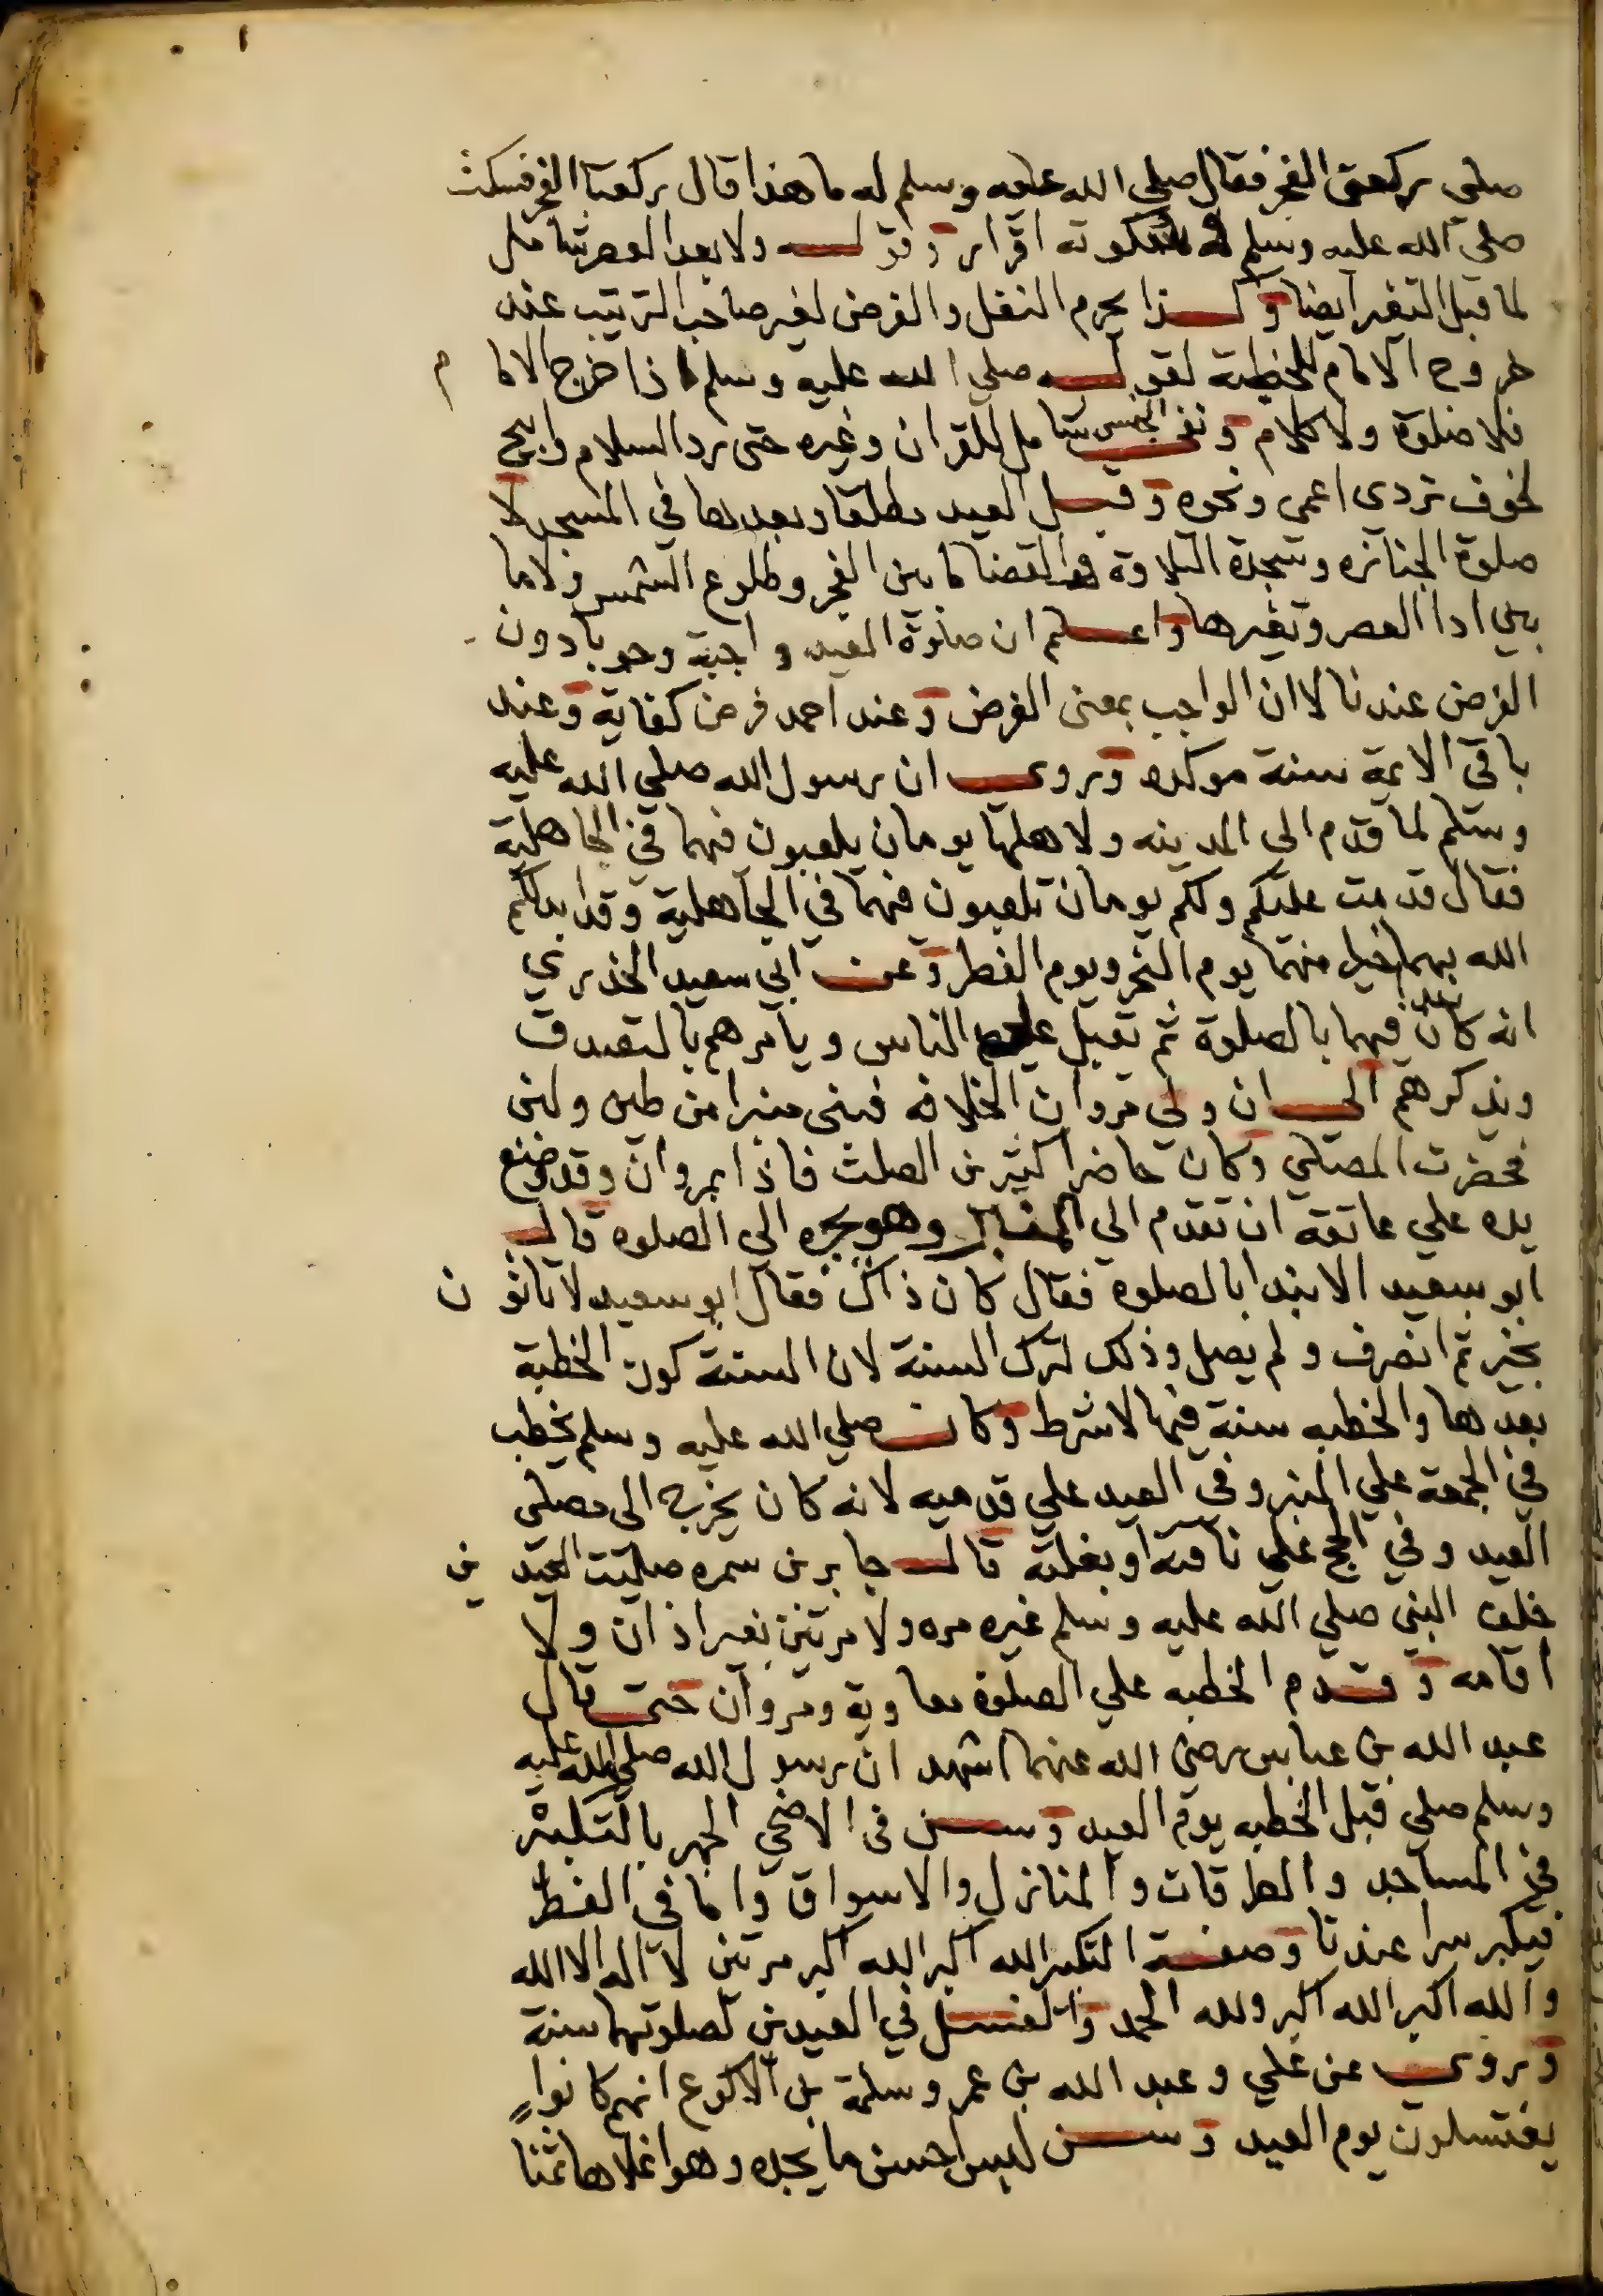 ١
صلى ركعتى الفجر فقال صلى الله عليه وسلم له ما هذا قال ركعتا الفجر فسكت
صلى الله عليه وسلم له فسكوته اقرار وقوله ولا بعد العصر شامل
لما قبل التغير ايضا وكذا يحرم النفل والفرض لغير صاحب الترتيب عند
خروج الامام للخطبة لقوله صلى الله عليه وسلم اذا خرج الامام
فلا صلوة ولا كلام ونفي الجنس شامل للقران وغيره حتى رد السلام وابيح
لخوف تردى اعمى ونحوه وقبل العيد مطلقا وبعدها في المسجد لا
صلوة الجنازه وسجدة التلاوة والقضا ما بين الفجر وطلوع الشمس ولا ما
بين ادا العصر وتغيرها واعلم ان صلوة العيد واجبة وجوبا دون
الفرض عندنا لا ان الواجب بمعنى الفرض وعند احمد فرض كفاية وعند
باقي الايمة سنة موكده وروى ان رسول الله صلي الله عليه
وسلم لما قدم الى المدينه ولاهلها يومان يلعبون فيهما في الجاهلية
فقال قدمت عليكم ولكم يومان تلعبون فيهما في الجاهلية وقد ابدلكم
الله بهما خيرا منهما يوم النحر ويوم الفطر وعن ابي سعيد الخدري
انه كان يبدا فيهما بالصلوة ثم تقبل على الناس ويامرهم بالتصدق
ويذكرهم الى ان ولي مروان الخلافه فبنى منبرا من طين ولبن
فحضرت المصلي وكان حاضرا كثير بن الصلت فاذا بمروان وقد وضع
يده علي عاتقه ان تقدم الي المنبر وهو يجره الي الصلوه قال
ابو سعيد الا نبدا بالصلوه فقال كان ذاك فقال ابو سعيد لا تاتون
بخير ثم انصرف ولم يصل وذلك لترك السنة لان السنة كون الخطبة
بعدها والخطبه سنة فيها لا شرط وكان صلي الله عليه وسلم يخطب
في الجمعة علي المنبر وفى العيد علي قدميه لانه كان يخرج الى مصلى
العيد وفي الحج علي ناقته او بغلته قال جابر بن سمره صليت العيدين
خلف النبي صلي الله عليه وسلم غيره مره ولا مرتين بغير اذان ولا
اقامه وقدم الخطبه علي الصلوة معاوية ومروان حتى قال
عبد الله بن عباس رضي الله عنهما اشهد ان رسول الله صلي الله عليه
وسلم صلي قبل الخطبه يوم العيد وسن فى الاضحي الجهر بالتكبير
في المساجد والطرقات والمنازل والاسواق واما في الفطر
فيكبر سرا عندنا وصفة التكبير الله اكبر الله اكبر مرتين لا اله الا الله
والله اكبر الله اكبر ولله الحمد والغسل في العيدين لصلوتهما سنة
وروى عن علي وعبد الله بن عمر وسلمة بن الاكوع انهم كانوا
يغتسلون يوم العيد وسن لبس احسن ما يجده وهو اغلاها ثمنا